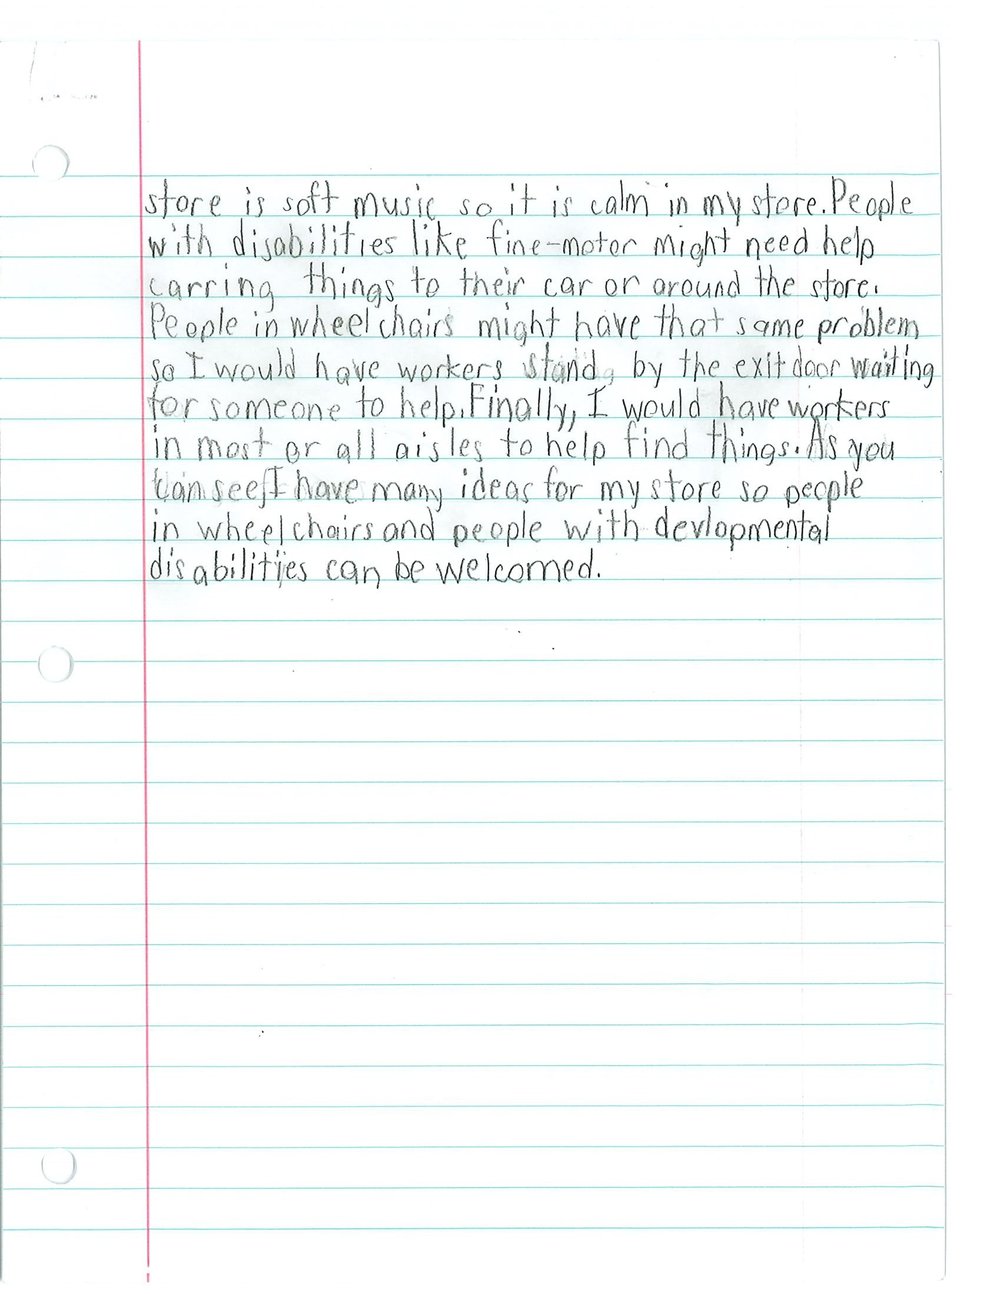 store is soft music so it is calm in my store. People
with disabilities like fine-motor might need help
carring things to their car or around the store.
People in wheelchairs might have that same problem
so I would have workers stand by the exit door waiting
for someone to help. Finally, I would have workers
in most or all aisles to help find things. As you
can see, I have many ideas for my store so people
in wheelchairs and people with devlopmental
disabilities can be welcomed.